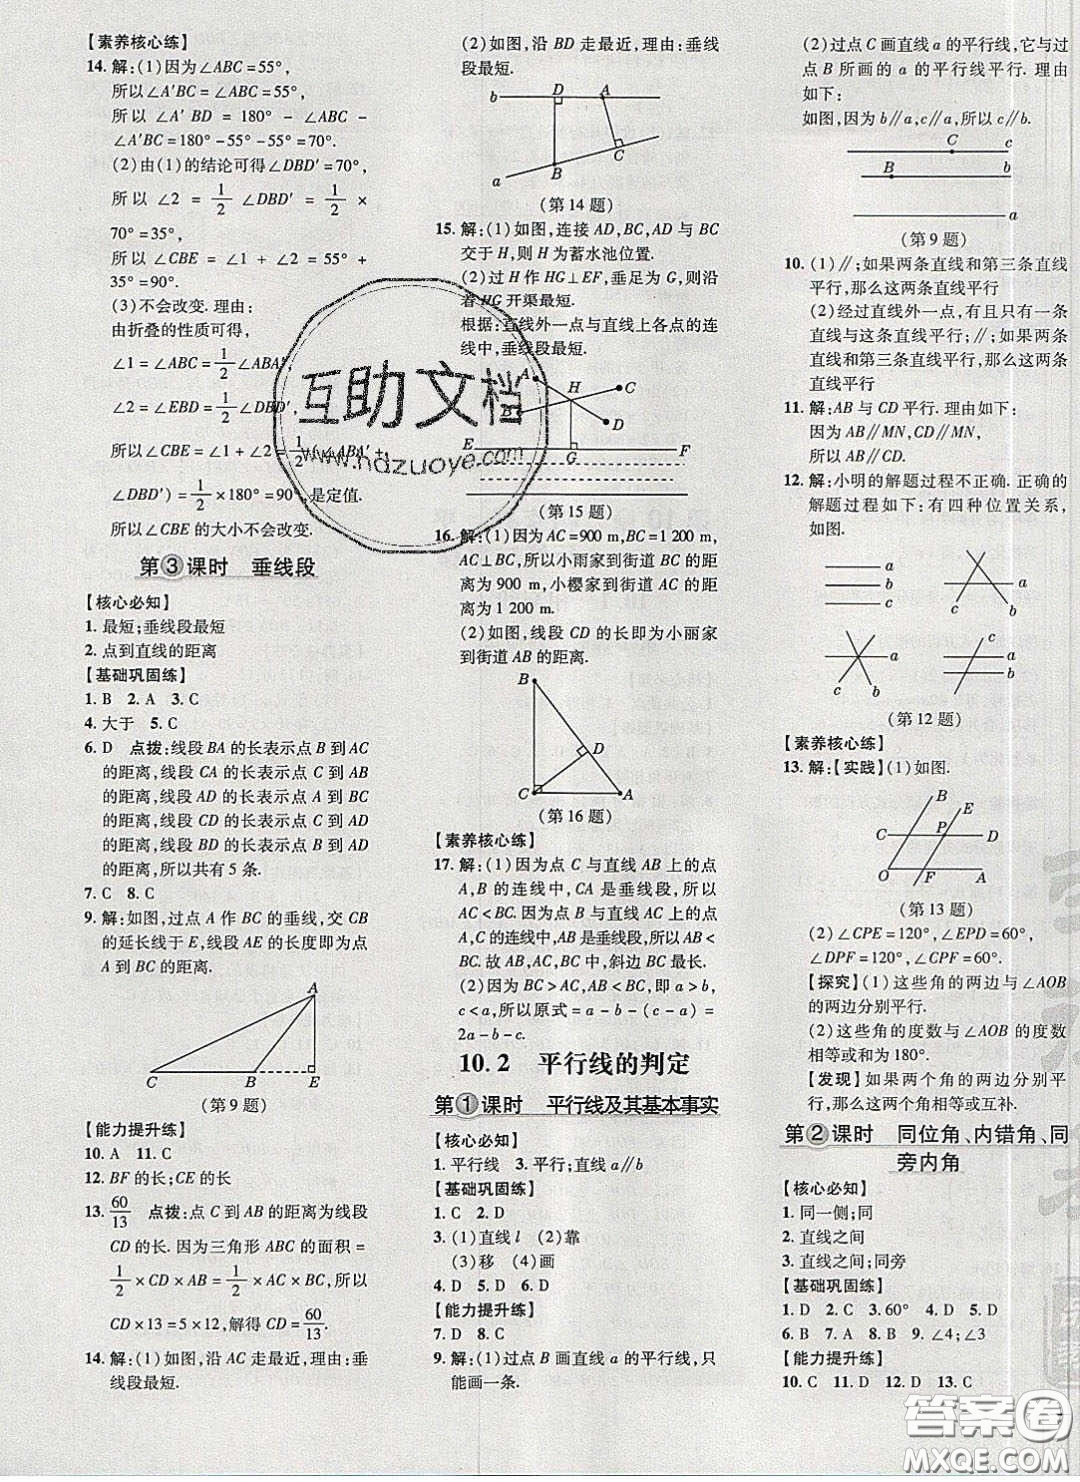 【素养核心练】
14. 解:(1)因为∠ABC=55°,
所以∠A′BC=∠ABC=55°,
所以∠A′BD=180°-∠ABC-
∠A′BC=180°-55°-55°=70°.
(2)由(1)的结论可得∠DBD′=70°,
所以∠2=1/2∠DBD′=1/2×
70°=35°,
所以∠CBE=∠1+∠2=55°+
35°=90°.
(3)不会改变. 理由:
由折叠的性质可得,
∠1=∠ABC=1/2∠ABA′,
∠2=∠EBD=1/2∠DBD′,
所以∠CBE=∠1+∠2=1/2(∠ABA′+
∠DBD′)=1/2×180°=90°,是定值.
所以∠CBE的大小不会改变.
第③课时 垂线段
【核心必知】
1. 最短;垂线段最短
2. 点到直线的距离
【基础巩固练】
1. B 2. A 3. C
4. 大于 5. C
6. D 点拨:线段BA的长表示点B到AC
的距离,线段CA的长表示点C到AB
的距离,线段AD的长表示点A到BC
的距离,线段BD的长表示点B到AD
的距离,线段CD的长表示点C到AD
的距离,所以共有5条.
7. C 8. C
9. 解:如图,过点A作BC的垂线,交CB
的延长线于E,线段AE的长度即为点
A到BC的距离.
A
C B E
(第9题)
【能力提升练】
10. A 11. C
12. BF的长;CE的长
13. 60/13 点拨:点C到AB的距离为线段
CD的长. 因为三角形ABC的面积=
1/2×CD×AB=1/2×AC×BC,所以
CD×13=5×12,解得CD=60/13.
14. 解:(1)如图,沿AC走最近,理由:垂
线段最短.
(2)如图,沿BD走最近,理由:垂线
段最短.
b D A
C
a B
(第14题)
15. 解:(1)如图,连接AD,BC,AD与BC
交于H,则H为蓄水池位置.
(2)过H作HG⊥EF,垂足为G,则沿
着HG开渠最短.
根据:直线外一点与直线上各点的连
线中,垂线段最短.
A H C
B D
E G F
(第15题)
16. 解:(1)因为AC=900 m,BC=1 200 m,
AC⊥BC,所以小雨家到街道BC的
距离为900 m,小樱家到街道AC的距
离为1 200 m.
(2)如图,线段CD的长即为小丽家
到街道AB的距离.
B
D
C A
(第16题)
【素养核心练】
17. 解:(1)因为点C与直线AB上的点
A,B的连线中,CA是垂线段,所以
AC<BC. 因为点B与直线AC上的点
A,C的连线中,AB是垂线段,所以AB<
BC. 故AB,AC,BC中,斜边BC最长.
(2)因为BC>AC,AB<BC,即a>b,
c<a,所以原式=a-b-(c-a)=
2a-b-c.
10.2 平行线的判定
第①课时 平行线及其基本事实
【核心必知】
1. 平行线 3. 平行;直线a∥b
【基础巩固练】
1. C 2. D
3. (1)直线l (2)靠
(3)移 (4)画
4. D 5. D 6. D
【能力提升练】
7. D 8. C
9. 解:(1)过点B画直线a的平行线,只
能画一条.
(2)过点C画直线a的平行线,它与过
点B所画的a的平行线平行. 理由
如下:
如图,因为b∥a,c∥a,所以c∥b.
C c
B b
a
(第9题)
10. (1)∥;如果两条直线和第三条直线
平行,那么这两条直线平行
(2)经过直线外一点,有且只有一条
直线与这条直线平行;∥;如果两条
直线和第三条直线平行,那么这两条
直线平行
11. 解:AB与CD平行. 理由如下:
因为AB∥MN,CD∥MN,
所以AB∥CD.
12. 解:小明的解题过程不正确. 正确的
解题过程如下:有四种位置关系,
如图.
a
b
c
a
c b
a
c b
c
a
b
(第12题)
【素养核心练】
13. 解:【实践】(1)如图.
B E
C P D
O F A
(第13题)
(2)∠CPE=120°,∠EPD=60°,
∠DPF=120°,∠CPF=60°.
【探究】(1)这些角的两边与∠AOB
的两边分别平行.
(2)这些角的度数与∠AOB的度数
相等或和为180°.
【发现】如果两个角的两边分别平
行,那么这两个角相等或互补.
第②课时 同位角、内错角、同
旁内角
【核心必知】
1. 同一侧;同
2. 直线之间
3. 直线之间;同旁
【基础巩固练】
1. D 2. C 3. 60° 4. D 5. D
6. B 7. B 8. A 9. ∠4;∠3
【能力提升练】
10. C 11. D 12. D 13. C
互助文档
www.hdzuoye.com
答案圈
MXQE.COM